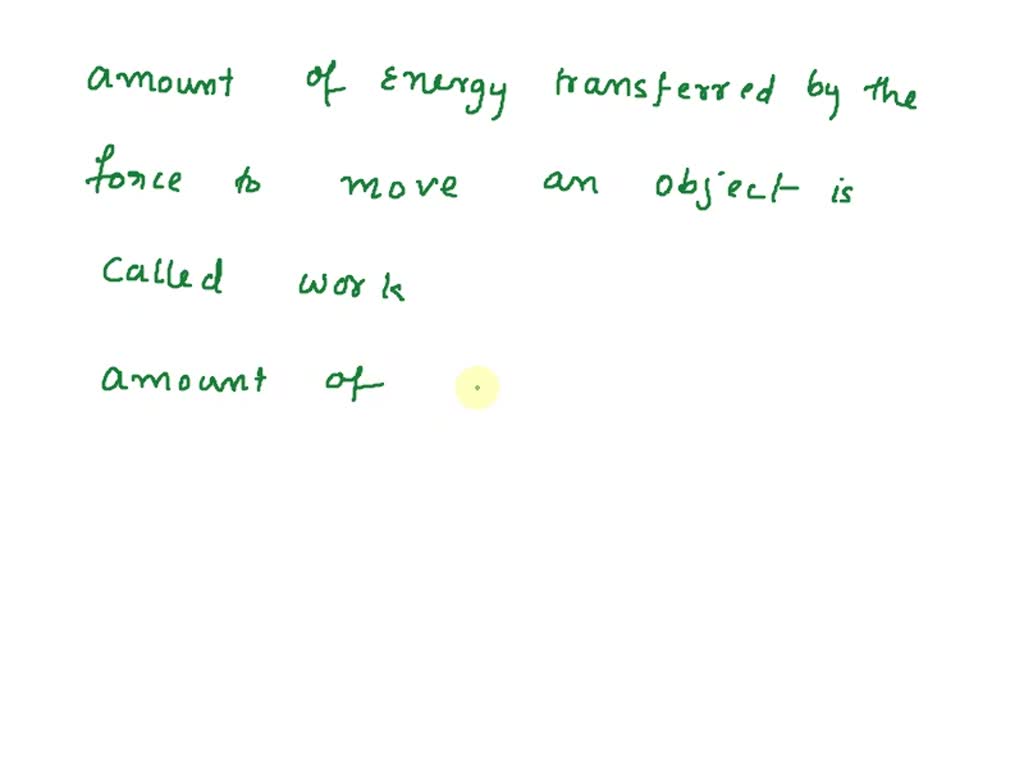 amount of energy transferred by the
force to move an object is
called work
amount of